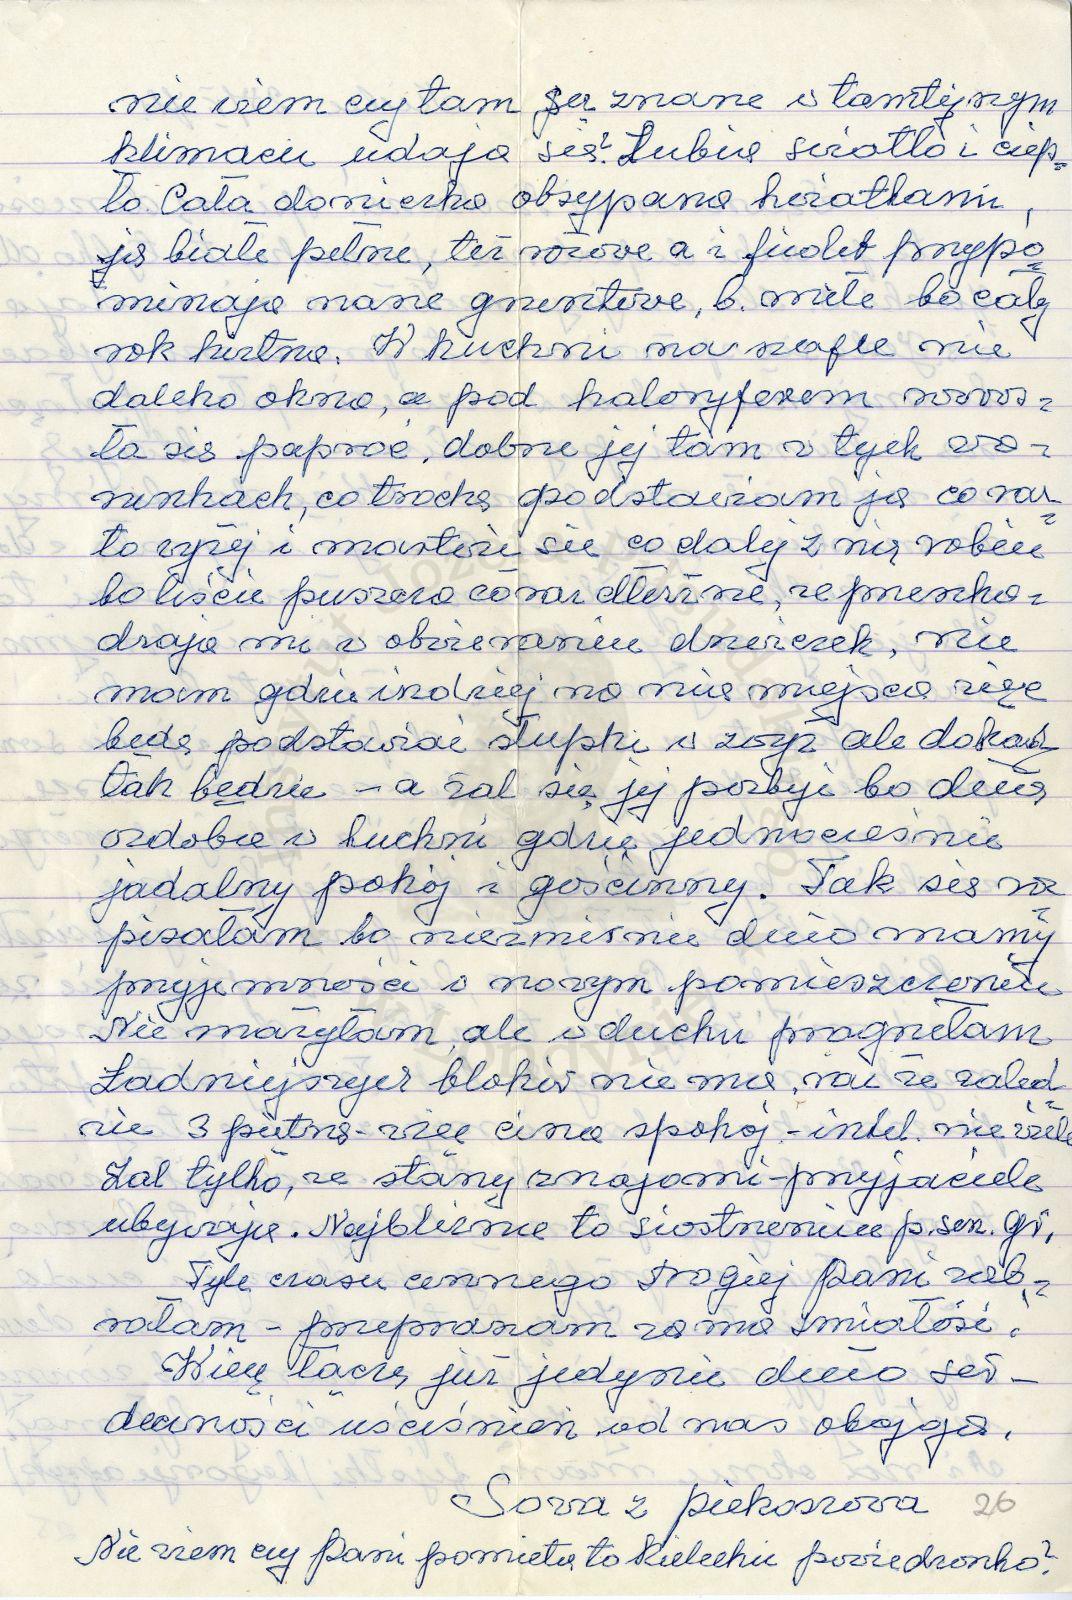 nie wiem czy tam są znane i w tamtejszym
klimacie udają się? Lubią światło i ciep-
ło. Cała doniczka obsypana kwiatkami,
są białe pełne, też różowe a i fiolet przypo-
minają nasze gruntowe, b. miłe bo cały
rok kwitną. W kuchni na szafce nie
daleko okna, a pod kaloryferem rozros-
ła się paproć, dobrze jej tam w tych wa-
runkach, co trochę podstawiam ją coraz
to wyżej i martwię się co dalej z nią robić
bo liście puszcza coraz dłuższe, że przeszka-
dzają mi w otwieraniu drzwiczek, nie
mam gdzie indziej na nią miejsca więc
będę podstawiać słupki w zwyż ale dokąd
tak będzie – a żal się jej pozbyć bo duża
ozdoba w kuchni gdzie jednocześnie
jadalny pokój i gościnny. Tak się roz
pisałam bo niezmiernie dużo mamy
przyjemności w nowym pomieszczeniu
Nie marzyłam, ale w duchu pragnęłam
Ładniejszych bloków nie ma, raz że zaled
wie 3 piętra – więc cisza spokój, – intel. nie wiele
Żal tylko, że starzy znajomi – przyjaciele
ubywają. Najbliższe to siostrzenice p. sen. Gr.
Tyle czasu cennego Drogiej Pani zab-
rałam – przepraszam za mą śmiałość.
Więc łączę już jedynie dużo ser-
deczności uściśnień od nas obojga.
Sowa z Piekoszowa 26
Nie wiem czy Pani pamięta to Kieleckie powiedzonko?